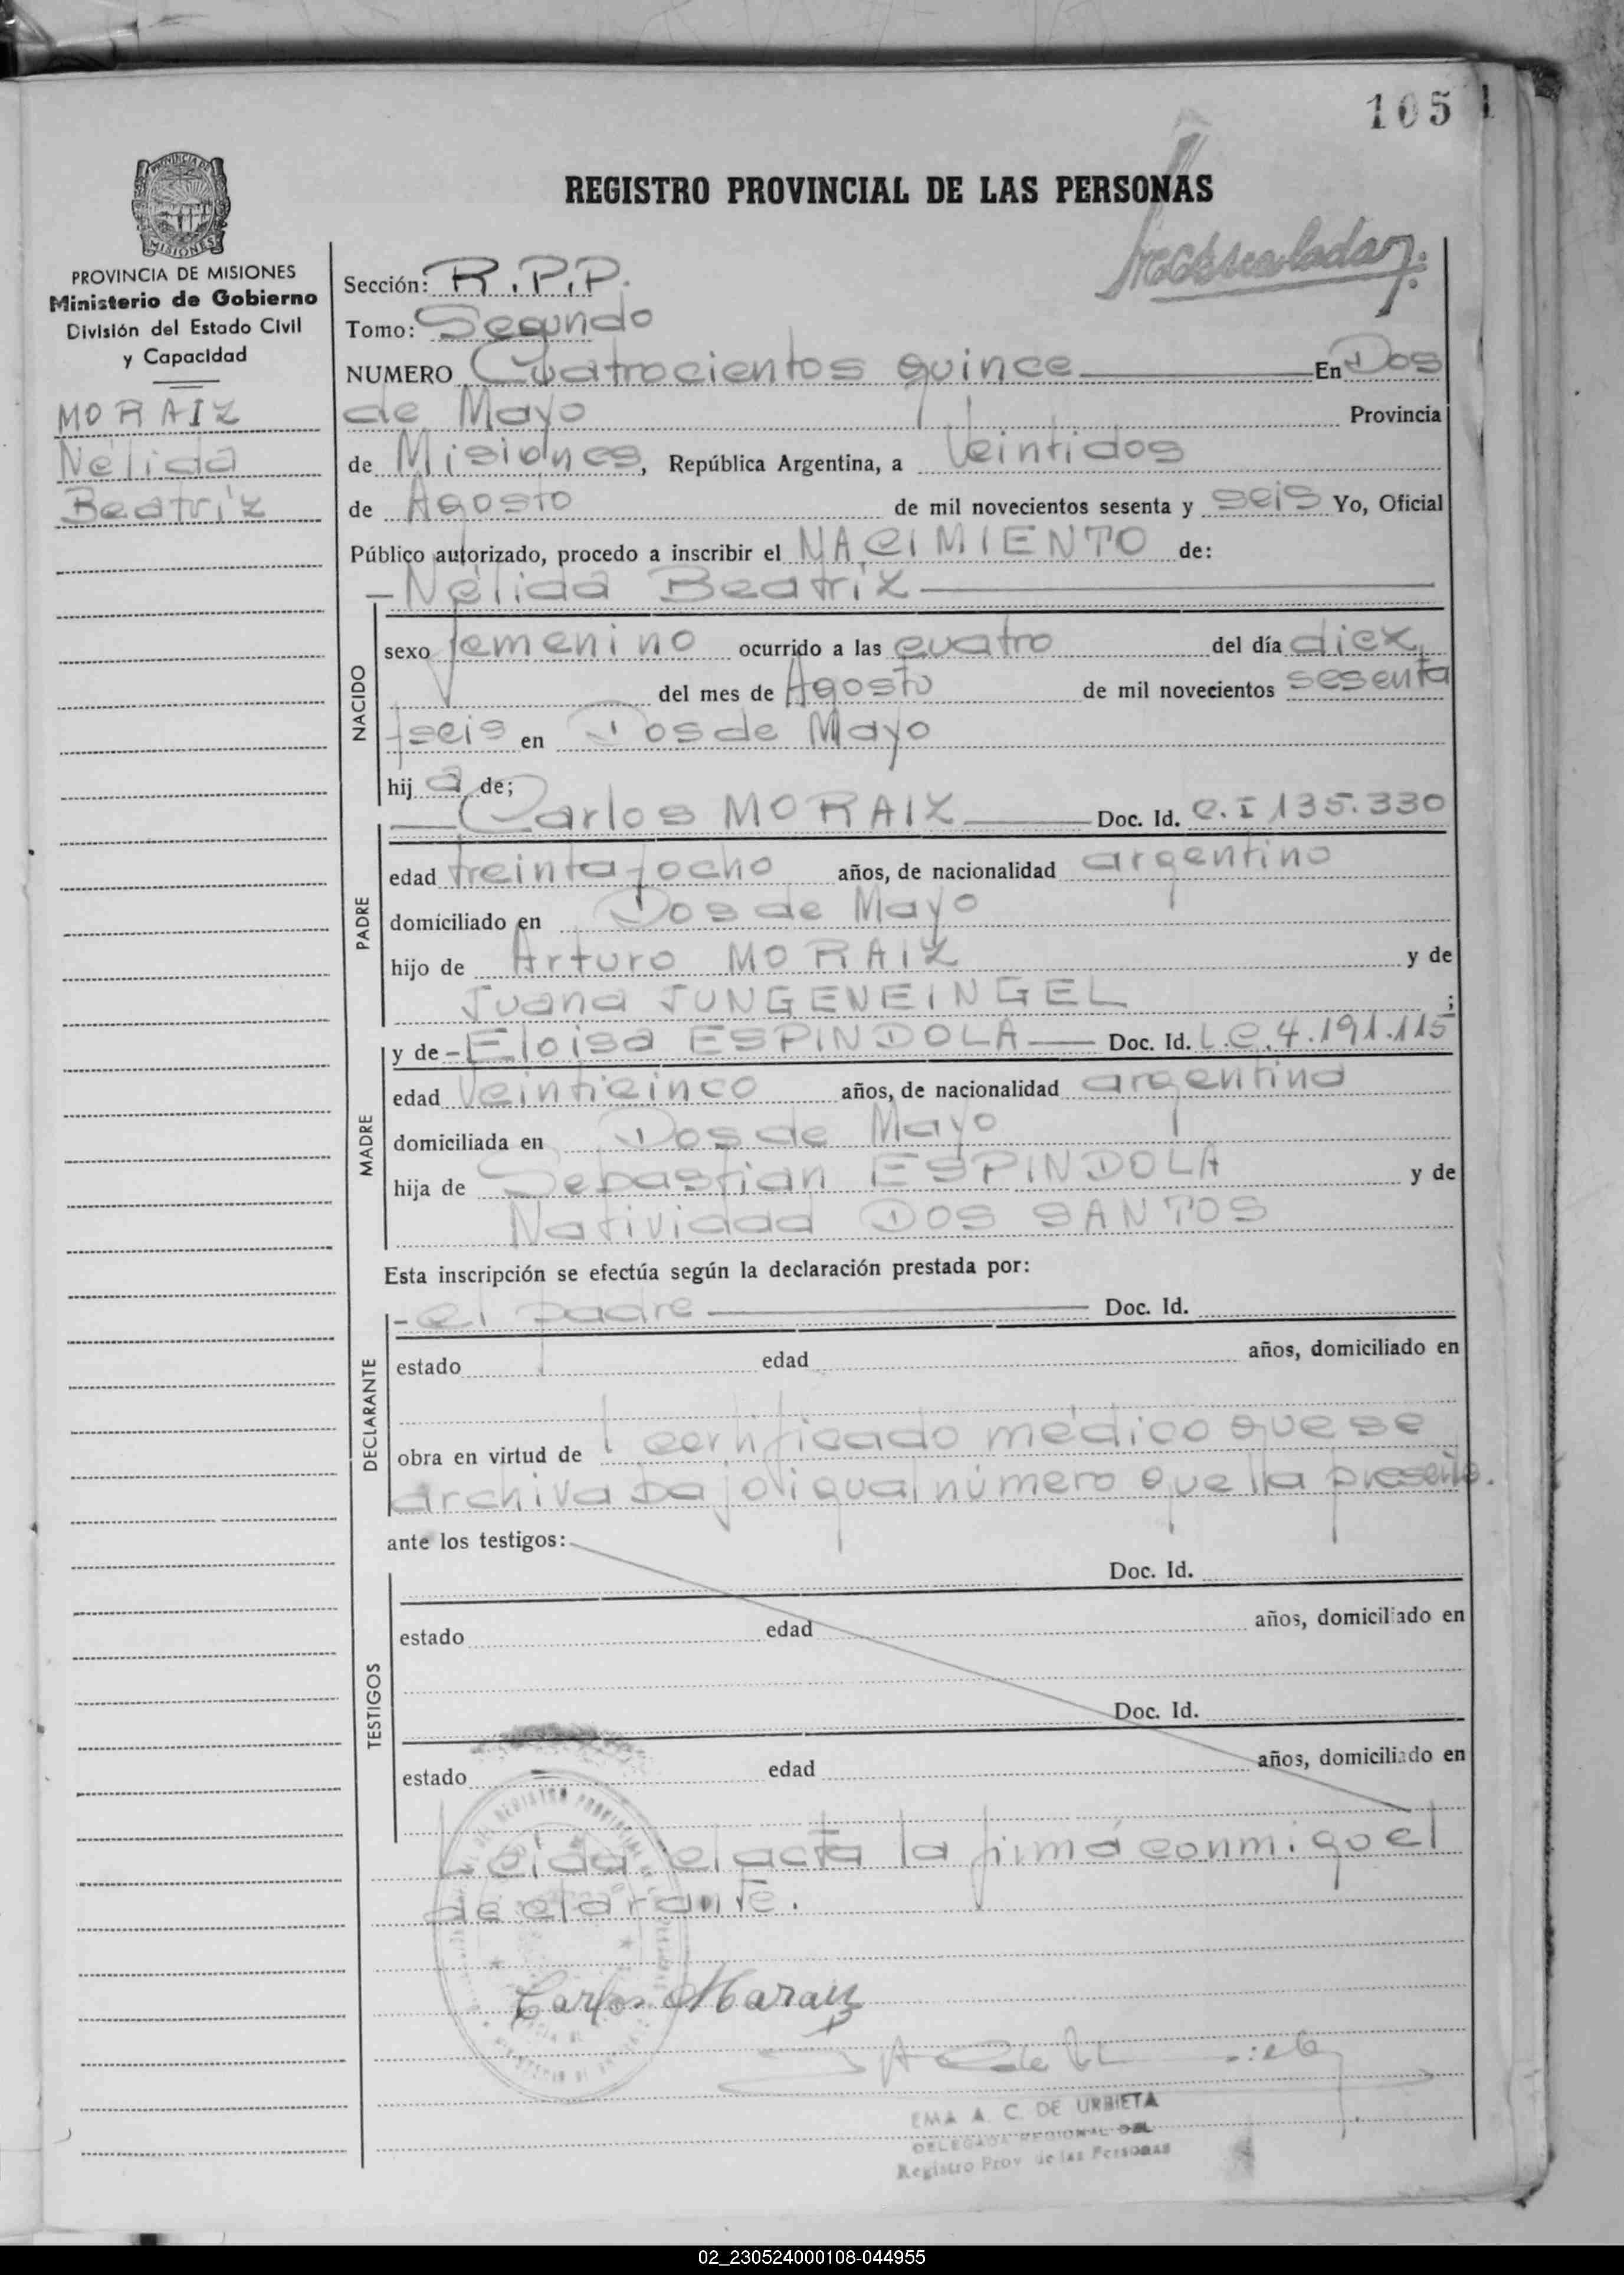 105
REGISTRO PROVINCIAL DE LAS PERSONAS
PROVINCIA DE MISIONES
Ministerio de Gobierno
División del Estado Civil
y Capacidad
MORAIZ
Nélida
Beatriz
Sección: R.P.P.
Tomo: Segundo
NUMERO Cuatrocientos quince En Dos
de Mayo Provincia
de Misiones, República Argentina, a Veintidos
de Agosto de mil novecientos sesenta y seis Yo, Oficial
Público autorizado, procedo a inscribir el NACIMIENTO de:
- Nélida Beatriz
NACIDO
sexo femenino ocurrido a las cuatro del día diez,
del mes de Agosto de mil novecientos sesenta
y seis en Dos de Mayo
hija de;
Carlos MORAIZ Doc. Id. C.I 135.330
PADRE
edad treinta y ocho años, de nacionalidad argentino
domiciliado en Dos de Mayo
hijo de Arturo MORAIZ y de
Juana JUNGENEINGEL ;
y de - Eloisa ESPINDOLA Doc. Id. L.C.4.191.115
MADRE
edad Veinticinco años, de nacionalidad argentina
domiciliada en Dos de Mayo
hija de Sebastian ESPINDOLA y de
Natividad DOS SANTOS
Esta inscripción se efectúa según la declaración prestada por:
- el padre Doc. Id.
DECLARANTE
estado edad años, domiciliado en
obra en virtud de certificado médico que se
archiva bajo igual número que la presente.
ante los testigos:
Doc. Id.
TESTIGOS
estado edad años, domiciliado en
Doc. Id.
estado edad años, domiciliado en
Leida el acta la firmá conmigo el
declarante.
Carlos Moraiz
EMA A. C. DE URBIETA
DELEGADA REGIONAL DEL
Registro Prov de las Personas
02_230524000108-044955